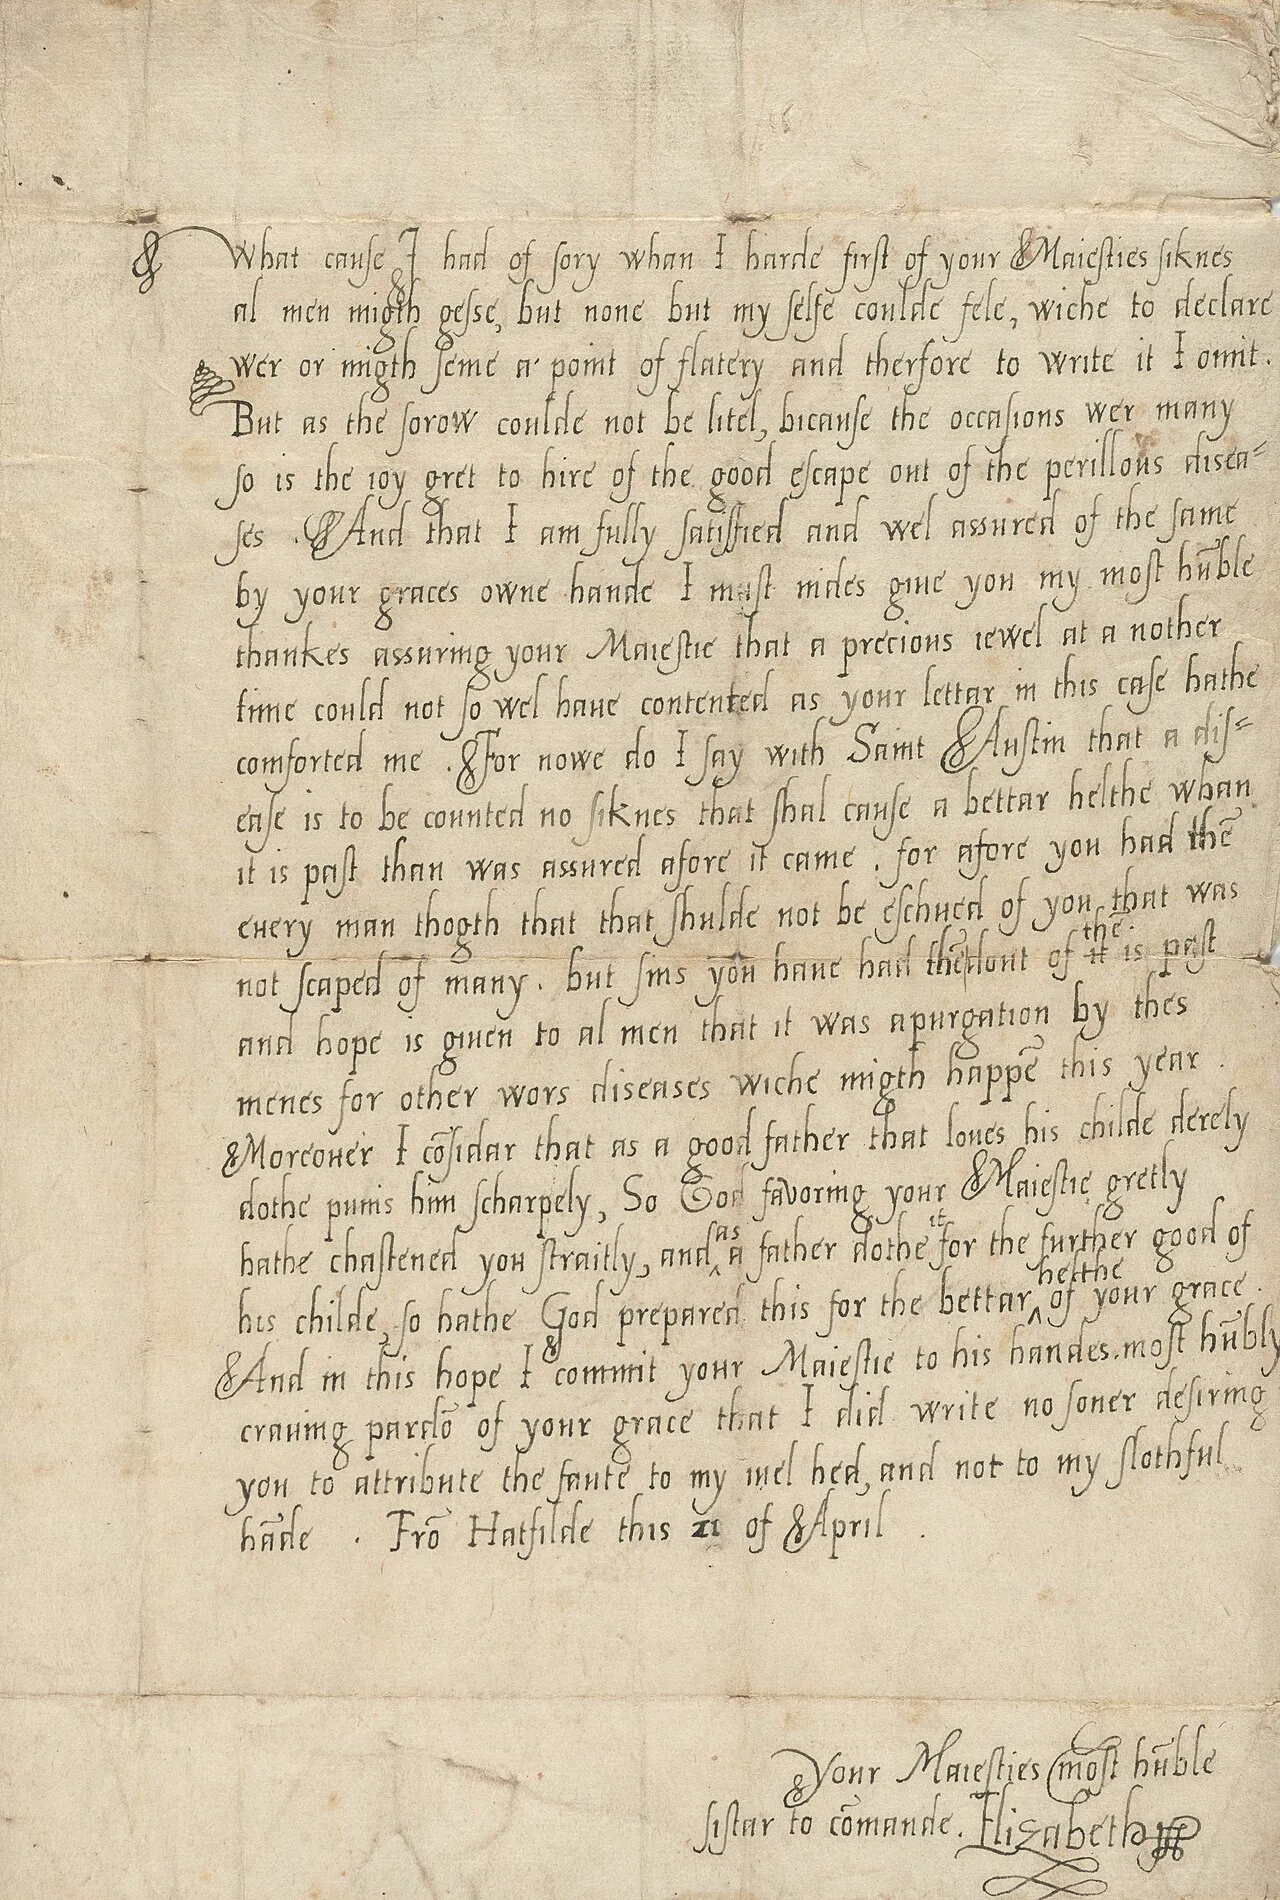 What cause I had of sory whan I harde first of your Maiesties siknes
al men migth gesse, but none but my selfe coulde fele, wiche to declare
wer or migth seme a point of flatery and therfore to write it I omit.
But as the sorow coulde not be litel, bicause the occasions wer many
so is the ioy gret to hire of the good escape out of the perillous disea=
ses. And that I am fully satisfied and wel assured of the same
by your graces owne hande I must nides giue you my most hūble
thankes assuring your Maiestie that a precious iewel at a nother
time could not so wel haue contented as your lettar in this case hathe
comforted me. For nowe do I say with Saint Austin that a dis=
ease is to be counted no siknes that shal cause a bettar helthe whan
it is past than was assured afore it came. for afore you had thē
euery man thogth that that shulde not be eschued of you that was
not scaped of many. but sins you haue had thē dout of
thē
it is past
and hope is giuen to al men that it was a purgation by thes
menes for other wors diseases wiche migth happē this year.
Moreouer I cōsidar that as a good father that loues his childe derely
dothe punis him scharpely, So God favoring your Maiestie gretly
hathe chastened you straitly, and as a father dothe it for the further good of
his childe, so hathe God prepared this for the bettar helthe of your grace.
And in this hope I commit your Maiestie to his handes. most hūbly
crauing pardō of your grace that I did write no soner desiring
you to attribute the faute to my iuel hed, and not to my slothful
hāde. Frō Hatfilde this 21 of April.
your Maiesties most hūble
sistar to cōmande. Elizabeth